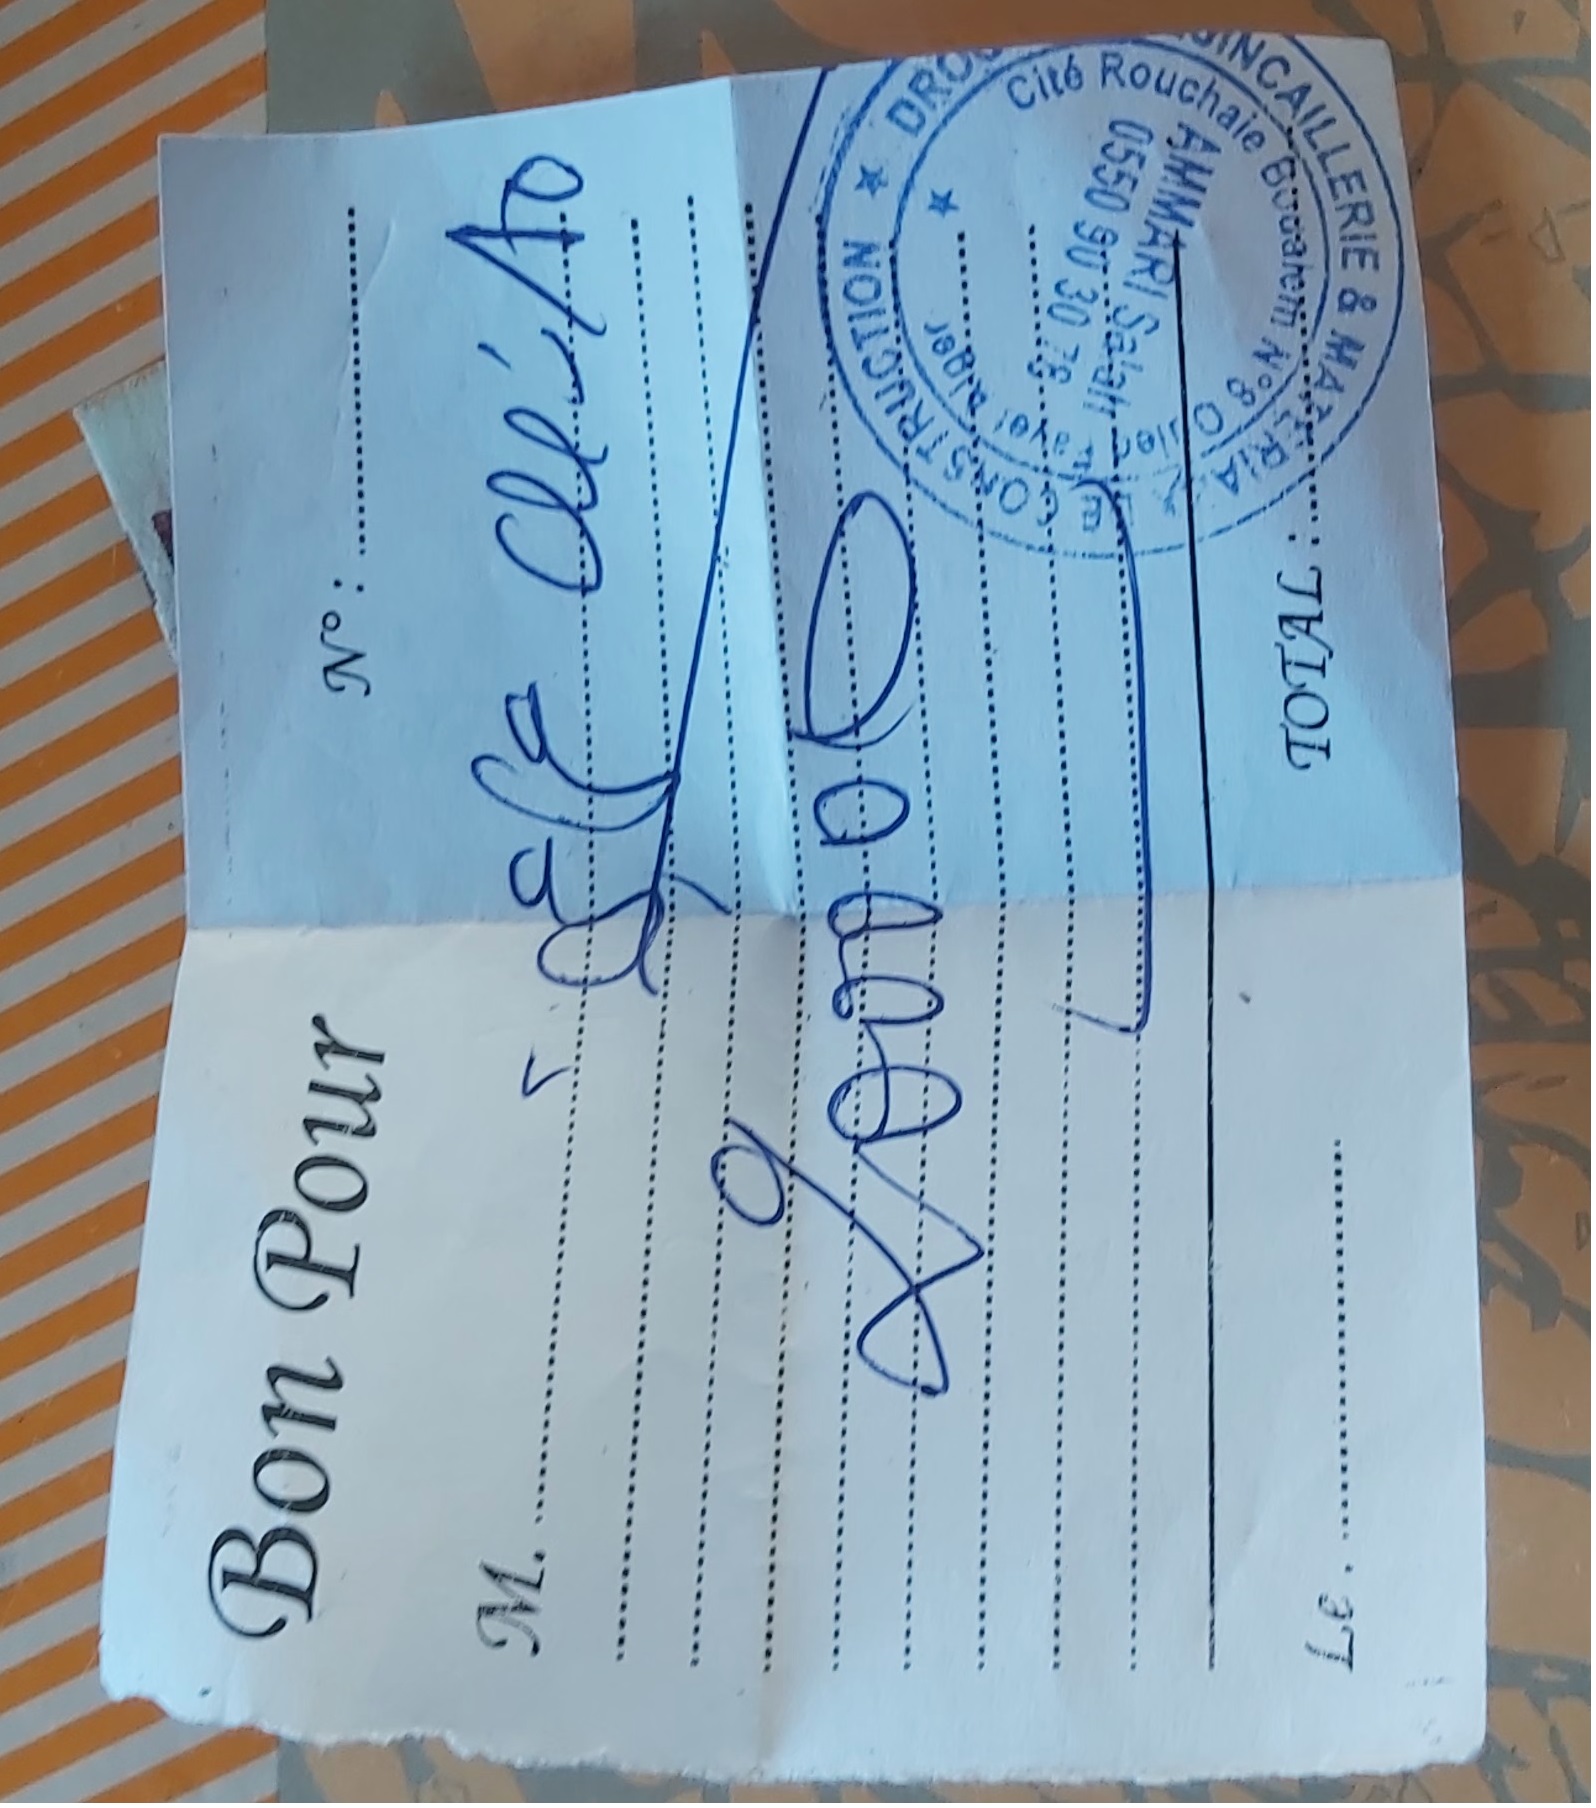 Bon Pour
N° :
M.
20000
Le .
TOTAL :
DROGUINCAILLERIE & MATERIAUX DE CONSTRUCTION
Cité Rouchaie Boualem N°8 Ouled Fayet Alger
AMMARI Salah
0550 90 30 78